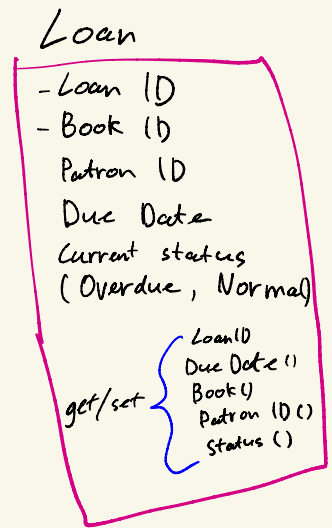 Loan
- Loan ID
- Book ID
Patron ID
Due Date
Current status
(Overdue, Normal)
get/set
Loan ID
Due Date ()
Book ()
Patron ID ()
Status ()